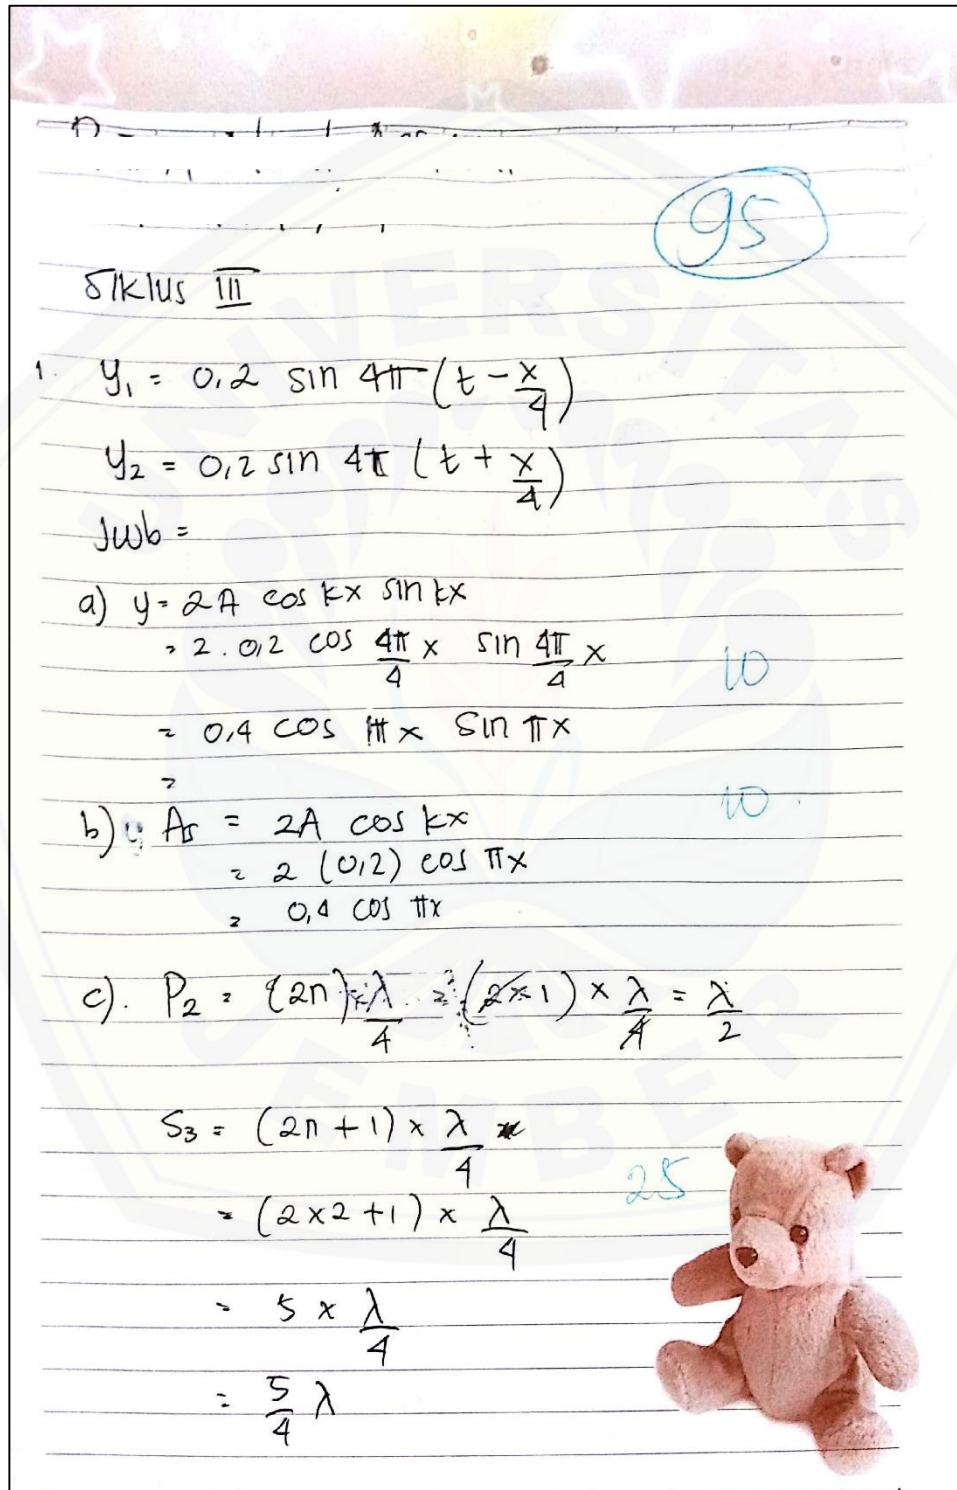 95
SIKlus III
1. y₁ = 0,2 sin 4π (t - x/4)
y₂ = 0,2 sin 4π (t + x/4)
Jwb =
a) y = 2A cos kx sin kx
= 2 . 0,2 cos 4π/4 x sin 4π/4 x
10
= 0,4 cos π x sin π x
=
10
b) As = 2A cos kx
= 2 (0,2) cos πx
= 0,4 cos πx
c). P₂ = (2n) × λ/4 = (2×1) × λ/4 = λ/2
S₃ = (2n + 1) × λ/4
25
= (2 × 2 + 1) × λ/4
= 5 × λ/4
= 5/4 λ
UNIVERSITAS
JEMBER